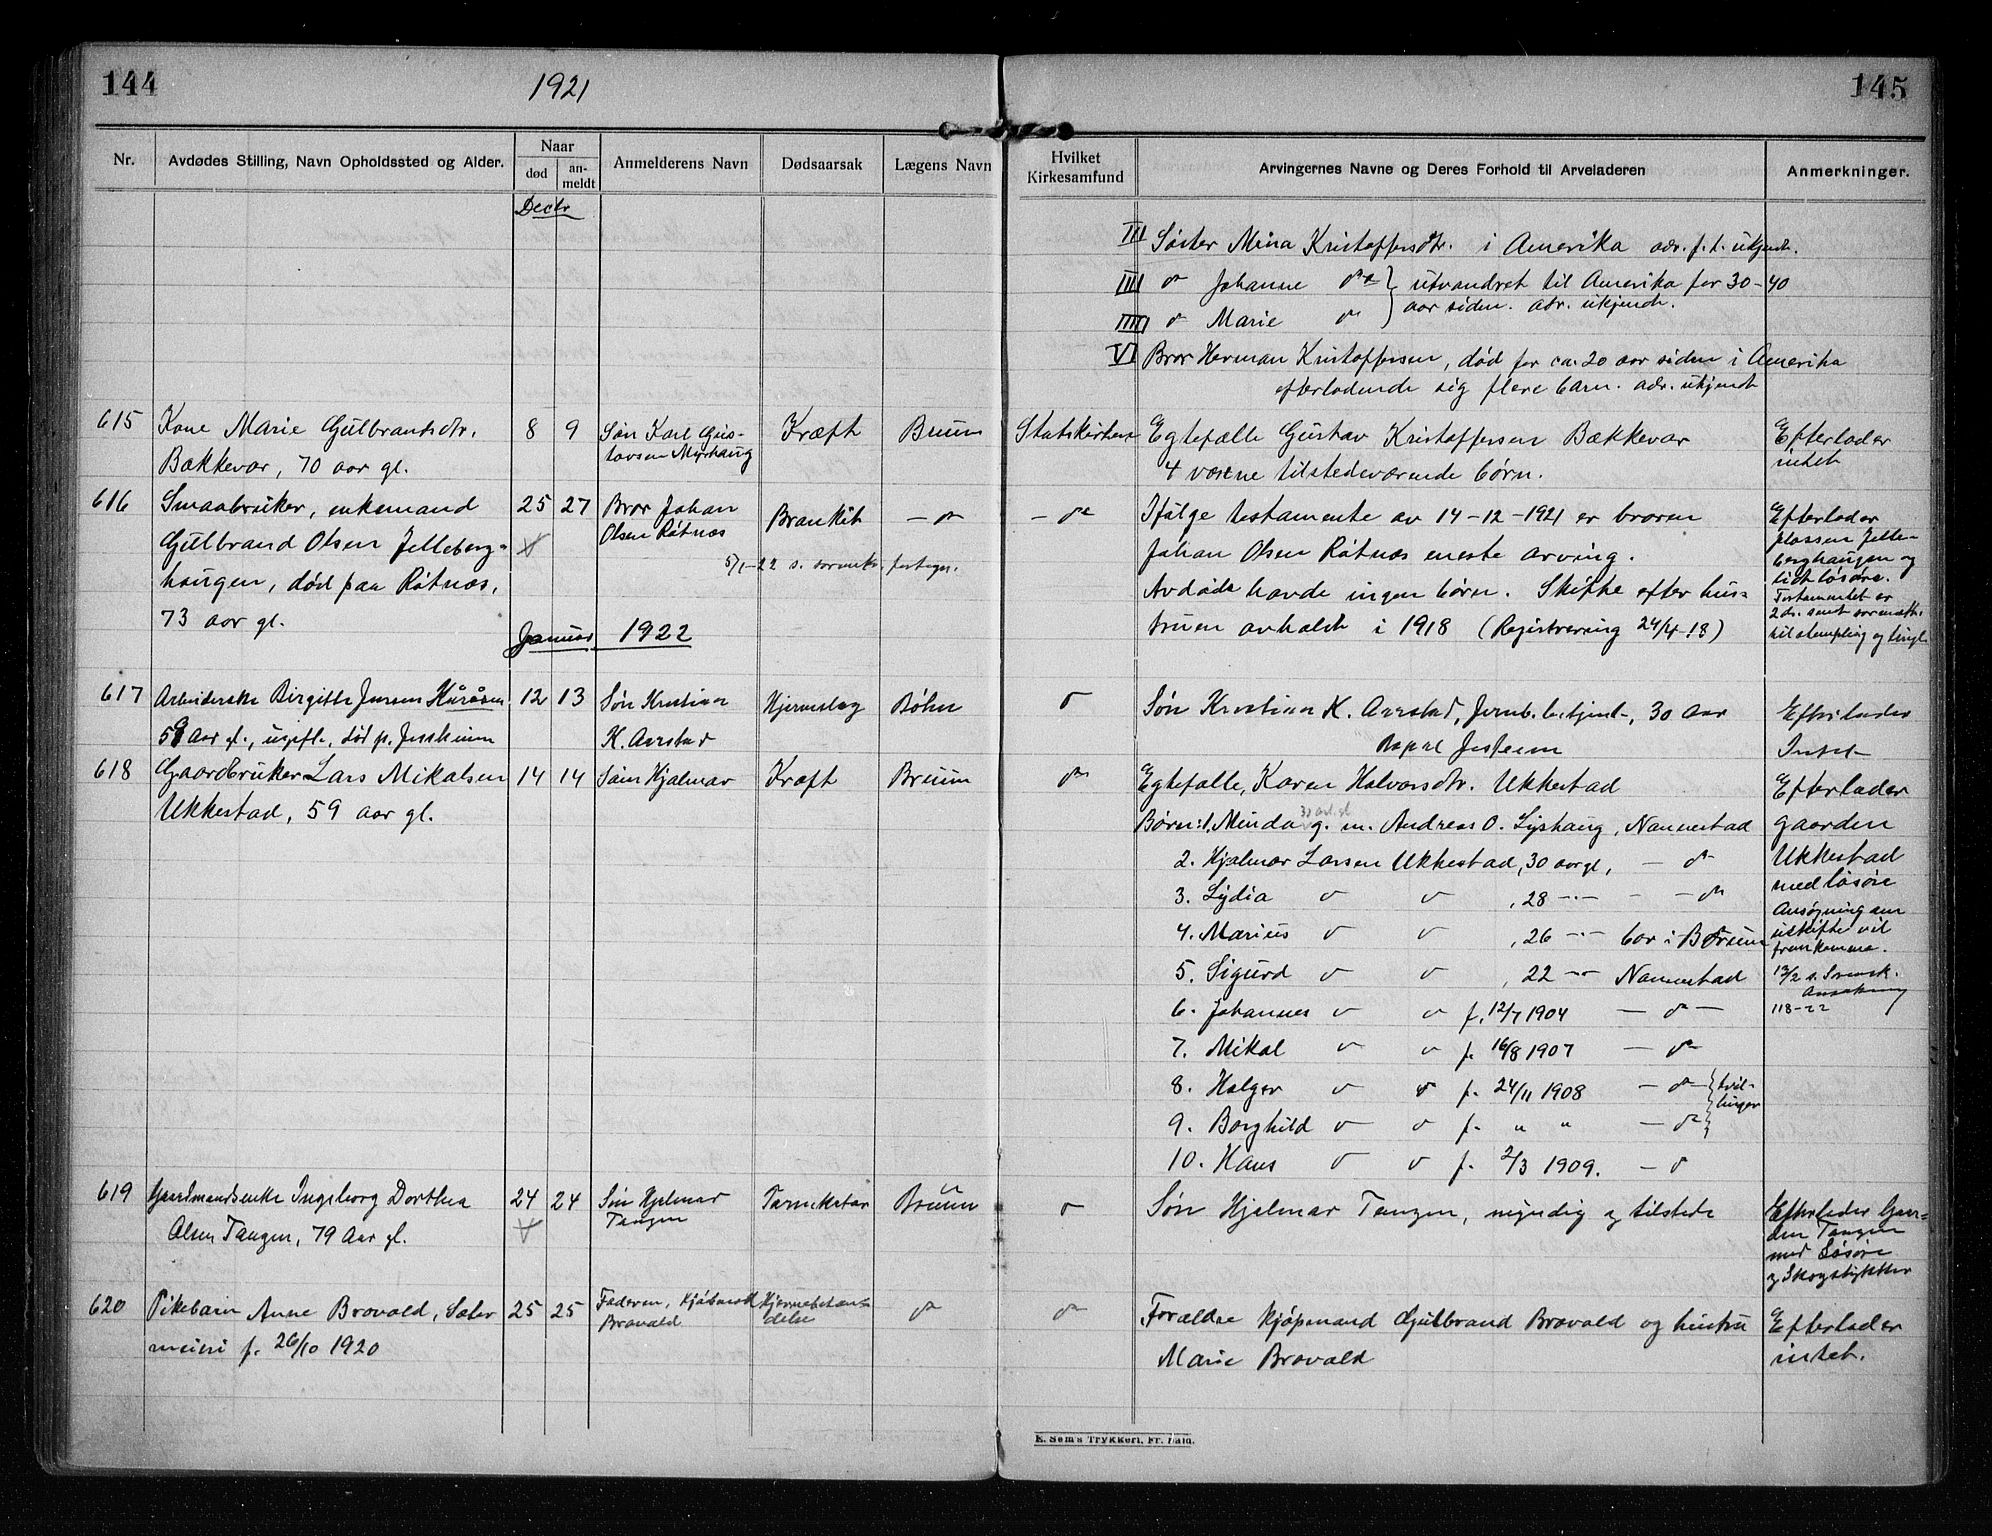 144
1921
145
Nr.
Avdødes Stilling, Navn Opholdssted og Alder.
Naar
død
an-
meldt
Anmelderens Navn
Dødsaarsak
Lægens Navn
Hvilket
Kirkesamfund
Arvingernes Navne og Deres Forhold til Arveladeren
Anmerkninger.
Decbr
III Søster Mina Kristoffersdtr. i Amerika adr. f. t. ukjendt.
IIII do Johanne do utvandret til Amerika for 30-40
aar siden. adr. ukjendt.
IIIII do Marie do
VI Bror Herman Kristoffersen, død for ca. 20 aar siden i Amerika
efterladende sig flere barn. adr. ukjendt
615 Kone Marie Gulbrandsdtr. 8 9 Søn Karl Gus- Kræft Bruun Statskirken Egtefælle Gustav Kristoffersen Bækkevar Efterlader
Bækkevar, 70 aar gl. tavsen Myrhaug 4 voxne tilstedeværende børn. intet
616 Smaabruker, enkemand 25 27 Bror Johan Bronkit — do — do Ifølge testamente av 14-12-1921 er broren Efterlader
Gulbrand Olsen Jelleberg- Olsen Røtnæs Johan Olsen Røtnæs eneste arving. plassen Jelle-
haugen, død paa Røtnæs, 5/1-22 s. Avdøde havde ingen børn. Skifte efter hus- berghaugen og
lidt løsøre.
73 aar gl. truen avholdt i 1918 (Registrering 24/4-18) Testamentet er
til stempling og tingl.
Januar 1922
617 Arbeiderske Birgitte Jensen 12 13 Søn Kristian Hjerneslag Bøhn do Søn Kristian K. Aarstad, Jernb. betjent, 30 aar Efterlader
59 Aar gl., ugift, død p. Jessheim K. Aarstad Jessheim Intet
618 Gaardbruker Lars Mikalsen 14 14 Søn Hjalmar Kræft Bruun do Egtefælle, Karen Halvorsdtr. Ukkestad Efterlader
Ukkestad, 59 aar gl. Børn: 1. Minda g. m. Andreas O. Lyshaug, Nannestad gaarden
2. Hjalmar Larsen Ukkestad, 30 aar gl, — do Ukkestad
3. Lydia do do , 28 — — do med løsøre
Ansøgning om
4. Marius do do , 26 — bor i Bærum uskifte vil
fremkomme.
5. Sigurd do do , 22 — Nannestad 13/2 s.
6. Johannes do do f. 12/7 1904 — do — 118-22
7. Mikal do do f. 16/8 1907 — do
8. Holger do do f. 24/11 1908 — do tvil-
linger
9. Borghild do do f. " " — do
10. Hans do do f. 2/3 1909. — do
619 Gaardmandsenke Ingeborg Dorthea 24 24 Søn Hjalmar Bruun do Søn Hjalmar Tangen, myndig og tilstede Efterlader Gaar-
Olsen Tangen, 79 Aar gl. Tangen den Tangen
med Løsøre
og Skogstykker
620 Pikebarn Anne Brovold, 25 25 Faderen, Kjøbmand Hjernebetæn- do do Forældre kjøpmand Gulbrand Brovold og hustru Efterlader
meieri f. 26/10 1920 Brovold delse Marie Brovold intet.
E. Sem's Trykkeri, Fr.hald.